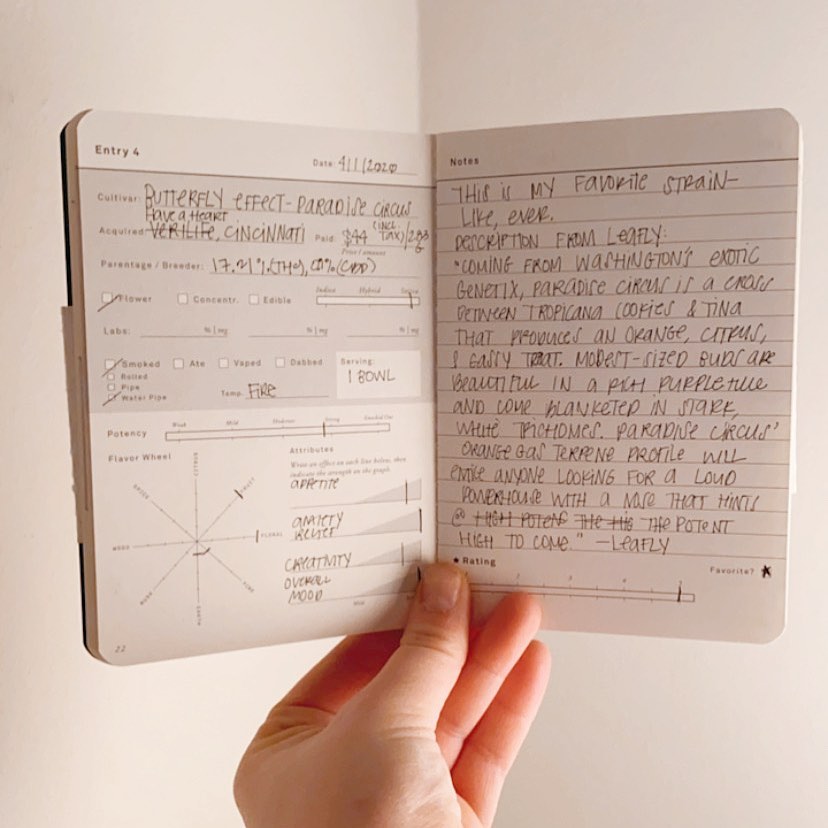 Entry 4
Date: 4/1/2020
Cultivar: BUTTERFLY EFFECT - PARADISE CIRCUS
HAVE A HEART
Acquired: VERILIFE, CINCINNATI Paid: $44 (INCL. TAX)/2.83 G
Price / amount
Parentage / Breeder: 17.21% (THC), (CBD)
Flower Concentr. Edible Indica Hybrid Sativa
Labs: % | mg % | mg % | mg
Smoked Ate Vaped Dabbed Serving:
Rolled
Pipe
Water Pipe Temp. FIRE 1 BOWL
Potency Weak Mild Moderate Strong Knocked Out
Flavor Wheel
CITRUS
FRUIT
FLORAL
EARTH
WOOD
SPICE
Attributes
Write an effect on each line below, then
indicate the strength on the graph.
APPETITE
ANXIETY
RELIEF
CREATIVITY
OVERALL
MOOD
Mild
22
Notes
THIS IS MY FAVORITE STRAIN-
LIKE, EVER.
DESCRIPTION FROM LEAFLY:
"COMING FROM WASHINGTON'S EXOTIC
GENETIX, PARADISE CIRCUS IS A CROSS
BETWEEN TROPICANA COOKIES & TINA
THAT PRODUCES AN ORANGE, CITRUS,
& GASSY TREAT. MODEST-SIZED BUDS ARE
BEAUTIFUL IN A RICH PURPLE HUE
AND COME BLANKETED IN STARK,
WHITE TRICHOMES. PARADISE CIRCUS'
ORANGE GAS TERPENE PROFILE WILL
ENTICE ANYONE LOOKING FOR A LOUD
POWERHOUSE WITH A NOSE THAT HINTS
@ HIGH POTENT THE HIG THE POTENT
HIGH TO COME." -LEAFLY
★ Rating
Favorite? ★